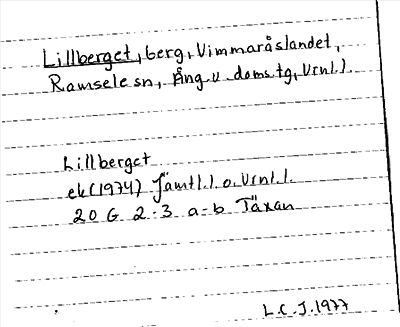 Lillberget, berg, Vimmaråslandet,
Ramsele sn, Ång. v. doms. tg, Vrnl.l.
Lillberget
ek (1974) Jämtl.l. o. Vrnl.l.
20 G 2-3 a-b Täxan
L.C.J. 1977